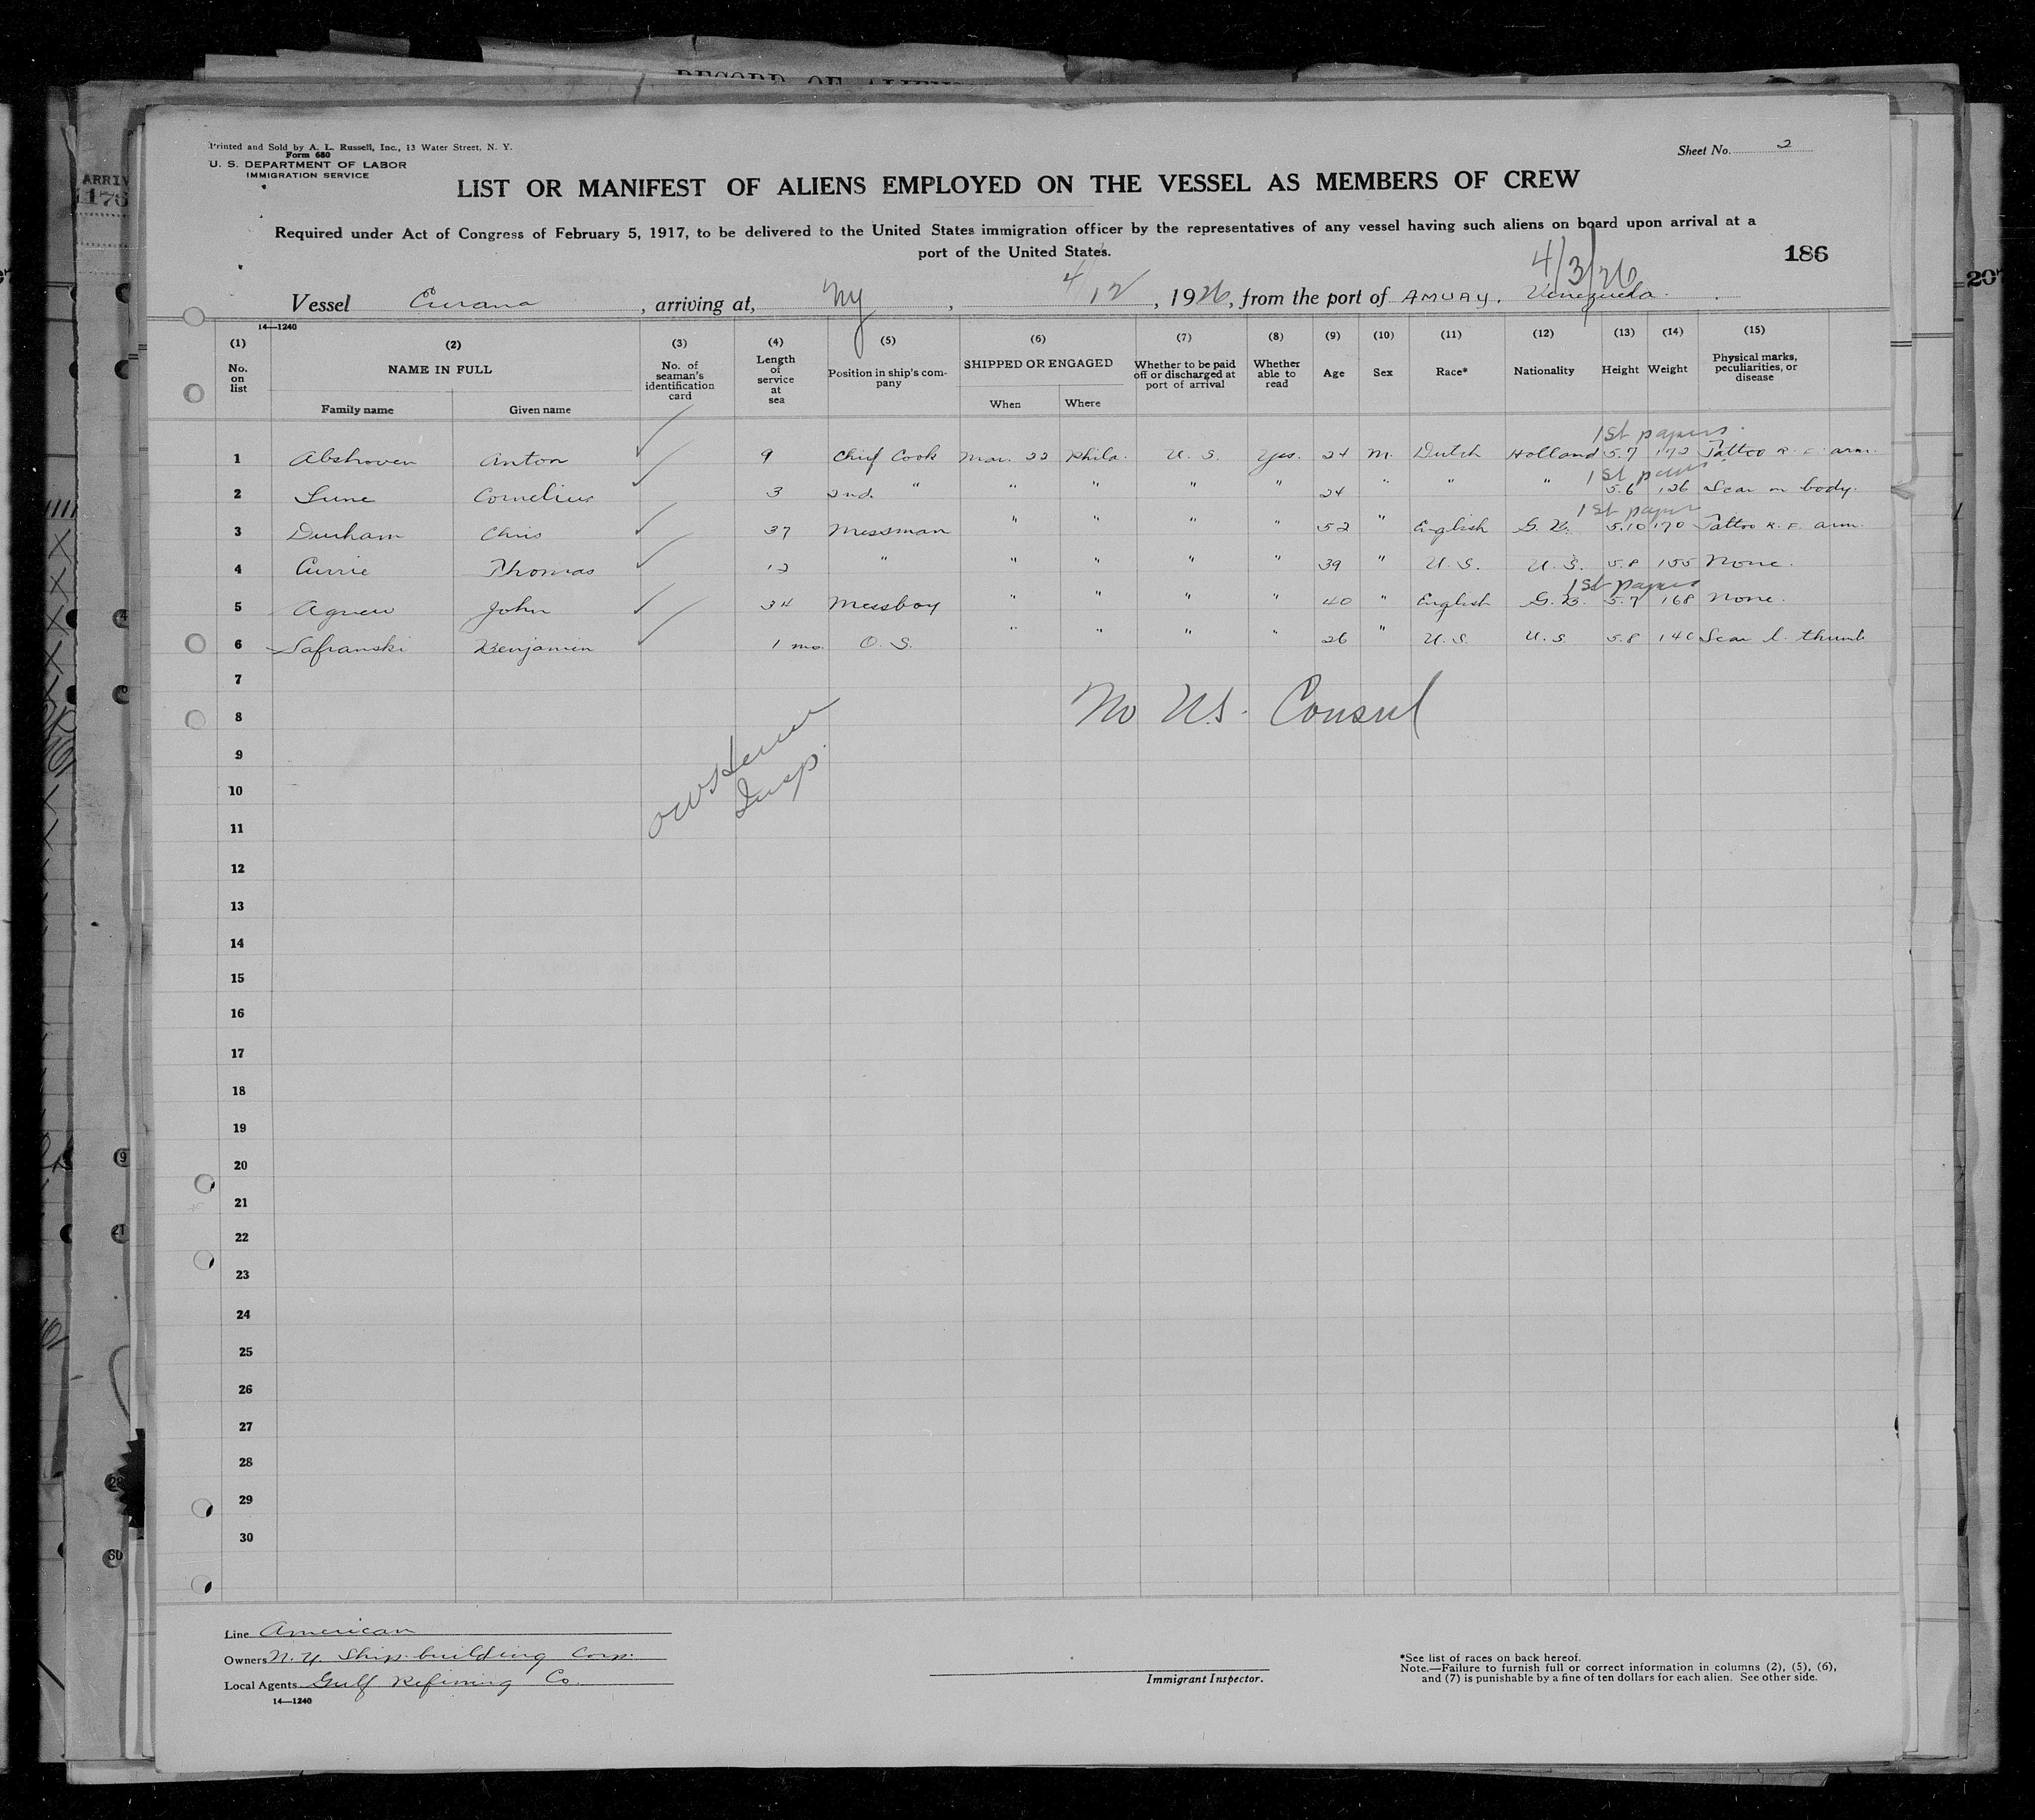 RECORD OF ALIENS
ARRIV
Printed and Sold by A. L. Russell, Inc., 13 Water Street, N. Y.
Form 680
U. S. DEPARTMENT OF LABOR
IMMIGRATION SERVICE
Sheet No. 2
LIST OR MANIFEST OF ALIENS EMPLOYED ON THE VESSEL AS MEMBERS OF CREW
Required under Act of Congress of February 5, 1917, to be delivered to the United States immigration officer by the representatives of any vessel having such aliens on board upon arrival at a
port of the United States.
186
207
4/3/26
Vessel , arriving at, NY , 4/12 , 1926, from the port of AMUAY, Venezuela.
14—1240
(1) (2) (3) (4) (5) (6) (7) (8) (9) (10) (11) (12) (13) (14) (15)
No. on list NAME IN FULL No. of seaman's identification card Length of service at sea Position in ship's company SHIPPED OR ENGAGED Whether to be paid off or discharged at port of arrival Whether able to read Age Sex Race* Nationality Height Weight Physical marks, peculiarities, or disease
Family name Given name When Where
1st papers.
1 Abshoven Anton ✓ 9 Chief Cook Mar. 22 Phila. U. S. Yes. 24 M. Dutch Holland 5.7 172 Tattoo R. F. arm.
1st papers
2 Cornelius ✓ 3 2nd. " " " " " 24 " " " 5.6 136 Scar on body.
1st papers
3 Durham Chris ✓ 37 Messman " " " " 52 " English G. B. 5.10 170 Tattoo R. F. arm.
4 Currie Thomas ✓ 12 " " " " " 39 " U. S. U. S. 5.8 155 None.
1st papers
5 Agnew John ✓ 34 Messboy " " " " 40 " English G. B. 5.7 168 None.
6 Safranski Benjamin ✓ 1 mo. O. S. " " " " 26 " U. S. U. S. 5.8 140 Scar l. thumb
7
No U.S. Consul
8
9
Insp.
10
11
12
13
14
15
16
17
18
19
20
21
22
23
24
25
26
27
28
29
30
Line American
Owners N. Y. Ship-building Corp.
Local Agents Gulf Refining Co.
14—1240
Immigrant Inspector.
*See list of races on back hereof.
Note.—Failure to furnish full or correct information in columns (2), (5), (6),
and (7) is punishable by a fine of ten dollars for each alien. See other side.